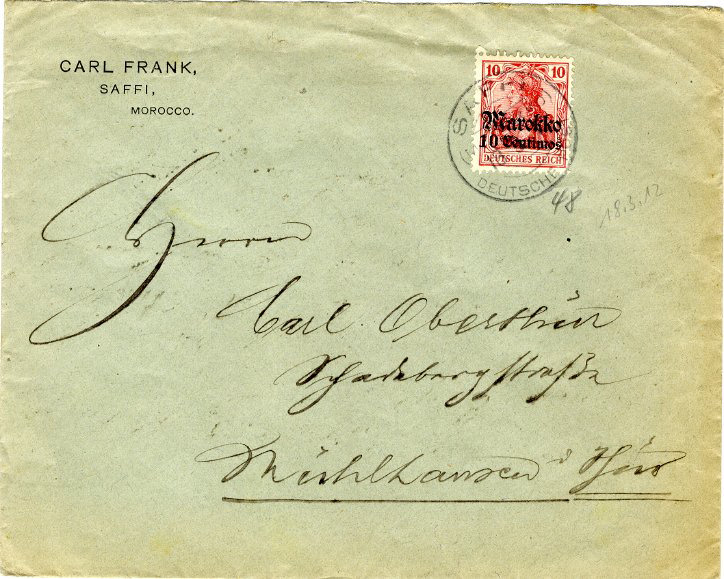 CARL FRANK,
SAFFI,
MOROCCO.
10 10
Marokko
10 Centimos
DEUTSCHES REICH
SAFFI
DEUTSCHE
48
18.3.12
Herrn
Carl Oberthür
Schadebergstraße
Mühlhausen i Thür